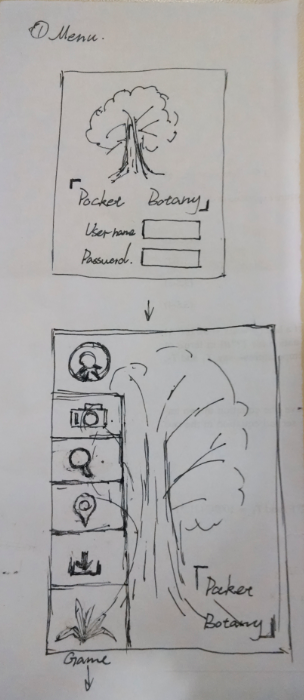 ① Menu.
Pocket Botany
User name
Password.
Pocket
Botany
Game